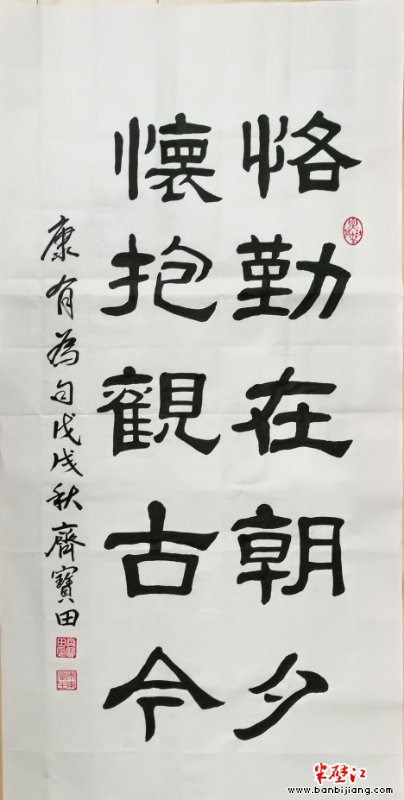 恪勤在朝夕
懷抱觀古今
康有為句戊戌秋齊寶田
半壁江
www.banbijiang.com